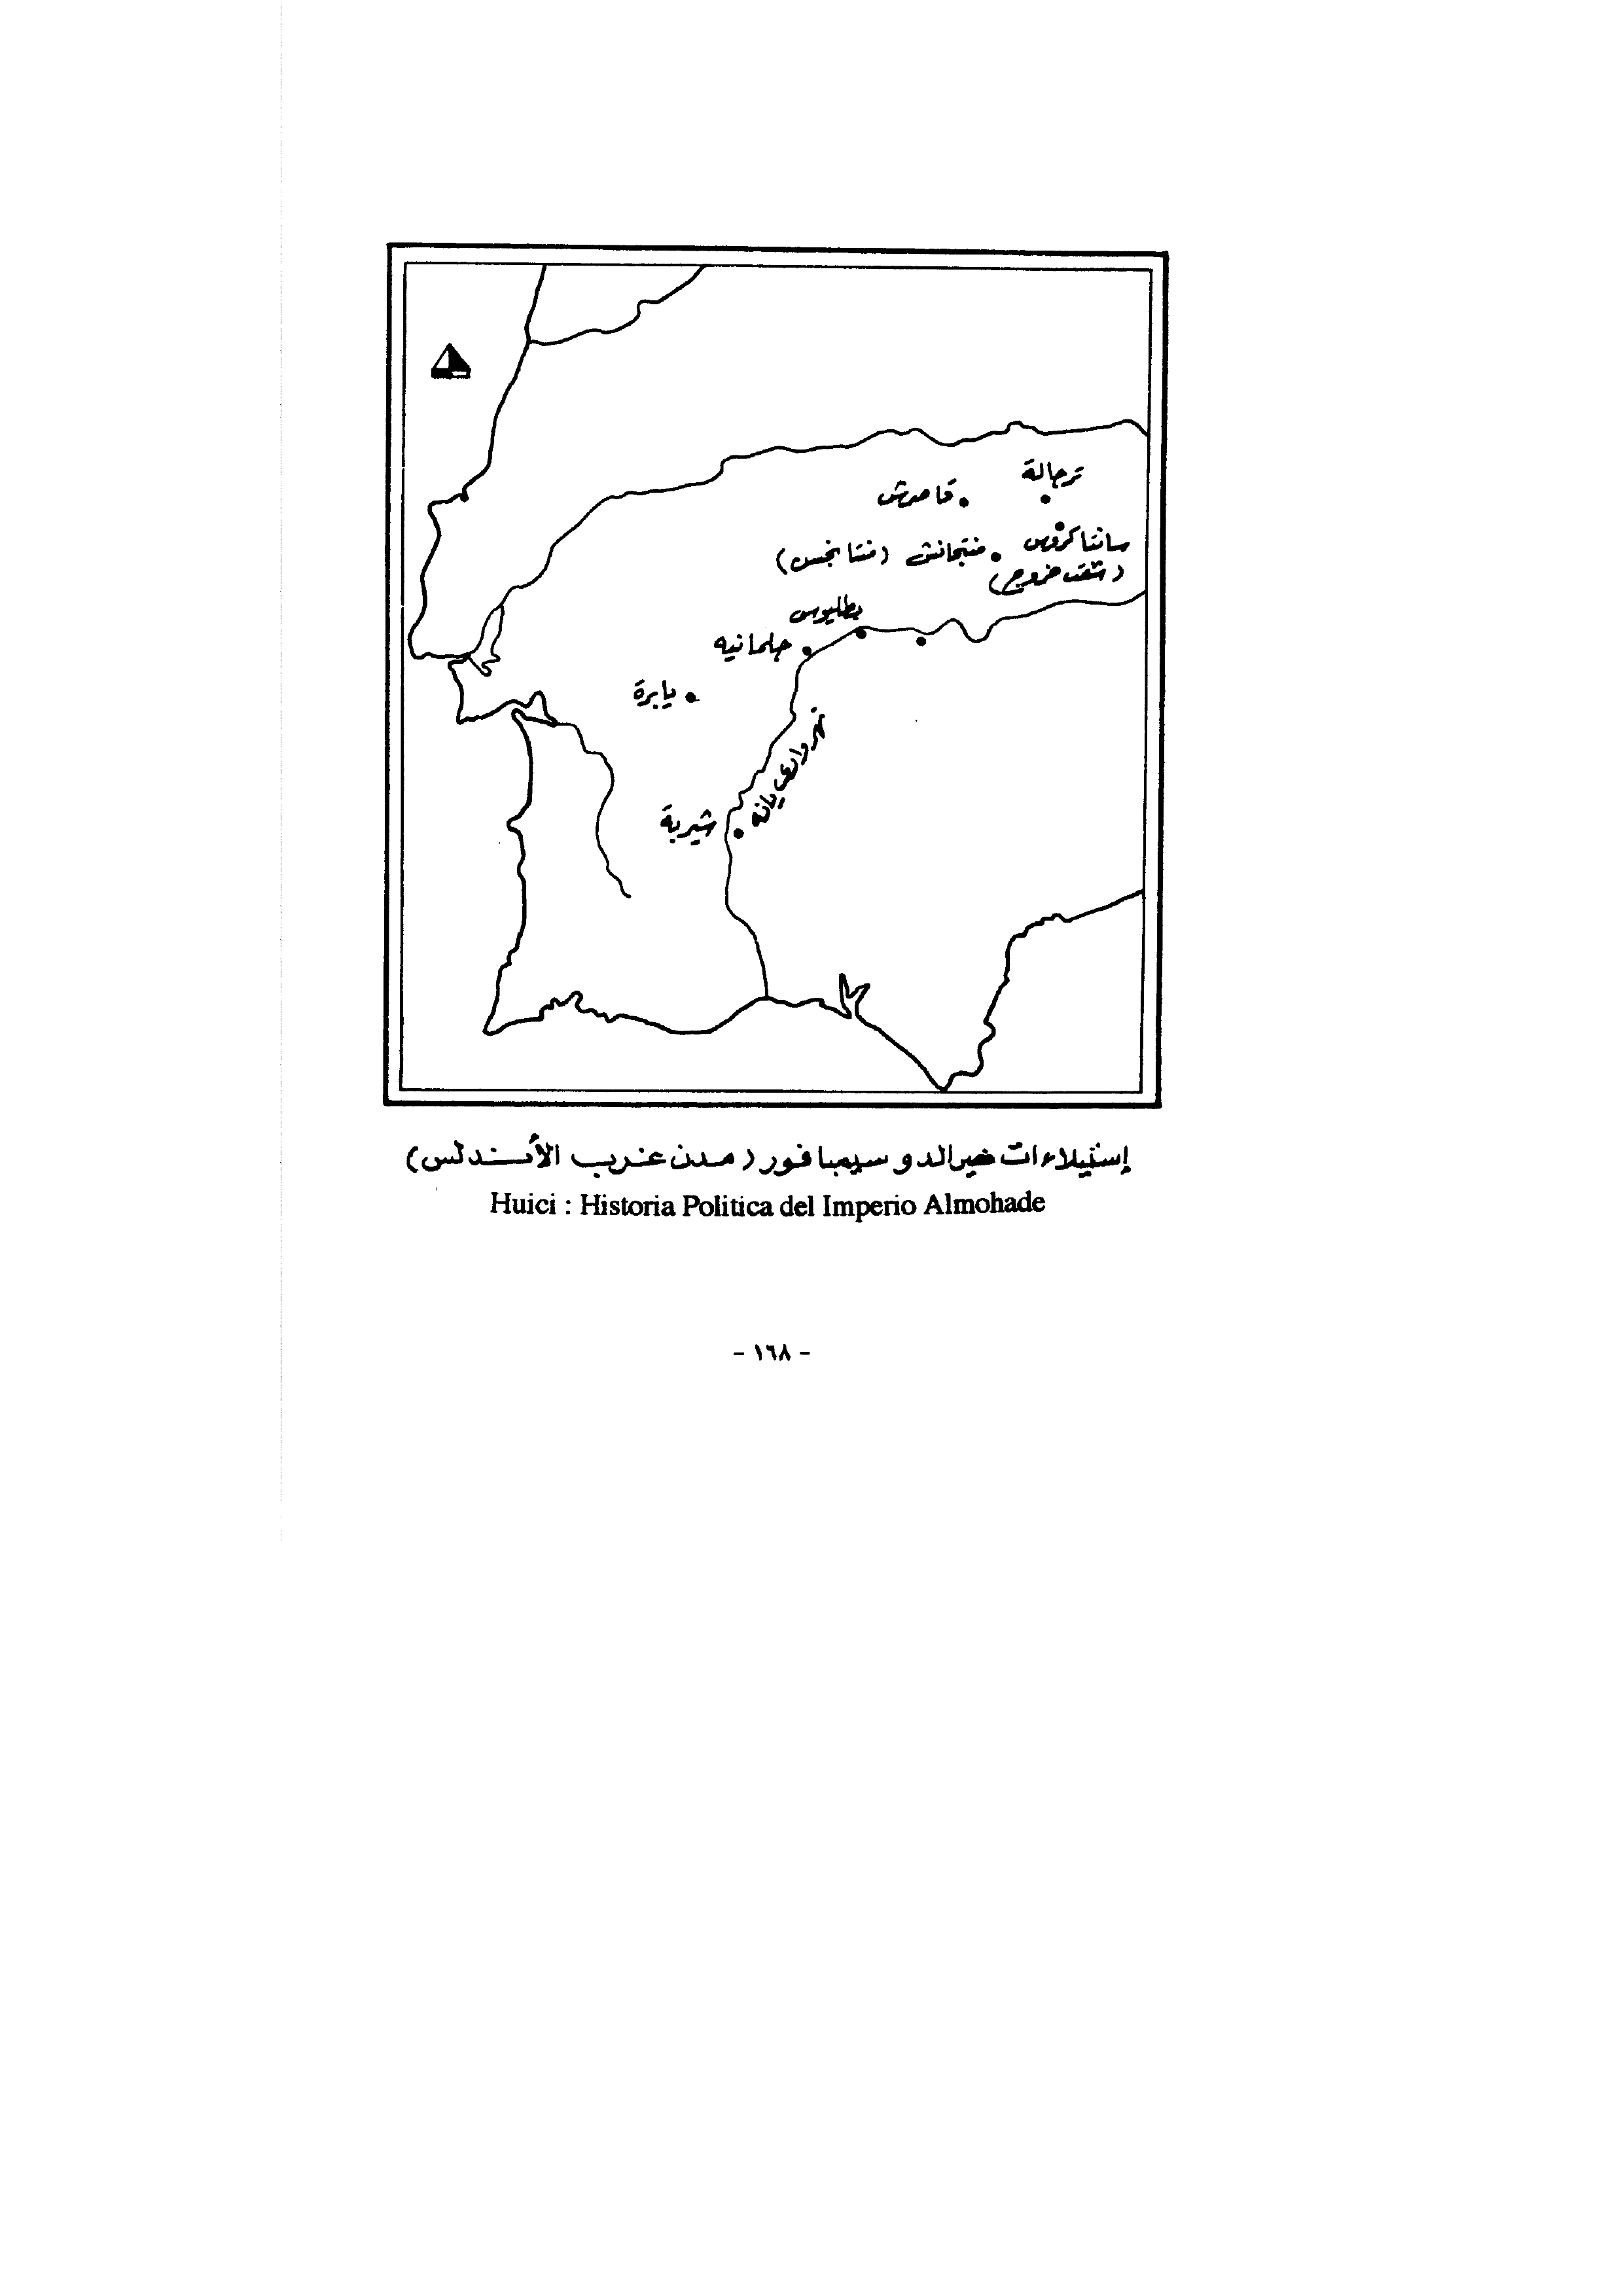 ترجالة
قاصرش
سانتاكروس
(شنت خروج)
منتجانش (منتا نجس)
بطليوس
جلمانيه
يابرة
نهر وادي يانه
شيربة
إستيلاءات خيرالدو سيمبافور (مدن غرب الأندلس)
Huici : Historia Politica del Imperio Almohade
- ١٦٨ -